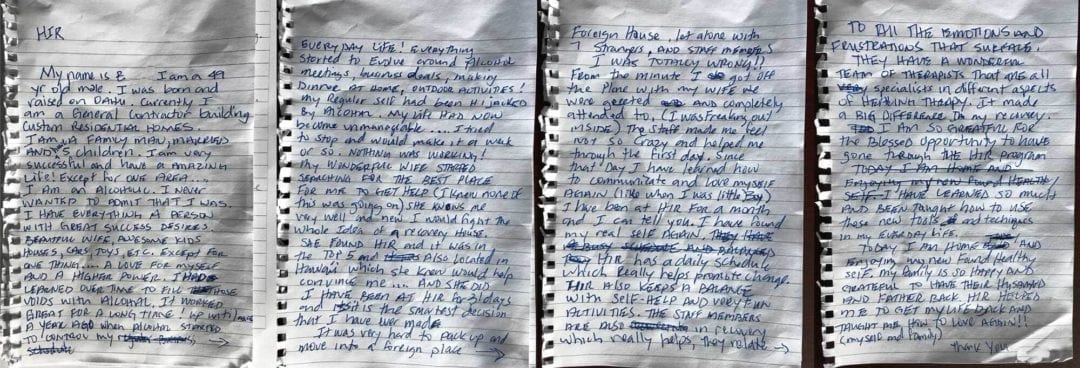 HIR
My name is E I am a 49
yr old male. I was born and
raised on OAHU. Currently I
am a General Contractor building
Custom Residential Homes.
I am a Family man, married
AND 5 children. I am very
successful and Have a amazing
Life! Except for ONE AREA....
I am an Alcoholic. I never
WANTED TO ADMIT THAT I WAS.
I HAVE EVERYTHING A PERSON
WITH GREAT SUCCESS DESIRES.
BEAUTIFUL WIFE, AWESOME KIDS
HOUSES, CARS, TOYS, ETC. EXCEPT FOR
ONE THING.... A LOVE FOR MYSELF
AND A HIGHER POWER. I HAD
LEARNED OVER TIME TO FILL THOSE
VOIDS WITH ALCOHOL. IT WORKED
GREAT FOR A LONG TIME! (UP UNTIL)
A YEAR AGO WHEN ALCOHOL STARTED
TO CONTROL MY
EVERYDAY LIFE! EVERYTHING
Started to Evolve around Alcohol
meetings, business deals, making
Dinner at Home, OUTDOOR ACTIVITIES!
My Regular Self had been HIJACKED
By Alcohol. My Life HAD NOW
become unmanageable.... I tried
to stop and would make it a week
or so. NOTHING WAS WORKING!
My WONDERFUL WIFE STARTED
SEARCHING FOR THE BEST PLACE
FOR ME TO GET HELP. (I knew none of
this was going on) SHE KNOWS ME
very well and new I would fight the
whole Idea of a recovery House.
SHE FOUND HIR and it was in
the TOP 5 and Also Located in
Hawaii which she knew would help
convince me... AND SHE DID
I HAVE BEEN AT HIR FOR 31 days
and it is the smartest decision
that I have ever made
It was very hard to Pack up and
move into a foreign place →
Foreign House, let alone with
7 Strangers, AND STAFF MEMBERS
I WAS TOTALLY WRONG!!
From the minute I got off
the Plane with my WIFE we
were greeted and completely
attended to, (I was Freaking out
INSIDE) The staff made me feel
not so Crazy and helped me
through the first day. Since
that Day I have learned how
to communicate and Love myself
AGAIN (like when I was little Boy)
I have been at HIR For a month
and I can tell you. I have found
my real self AGAIN. They HAVE
A BUSY SCHEDULE AND
HIR HAS a daily schedule
which Really helps promote change.
HIR ALSO KEEPS A BALANCE
with SELF-HELP AND VERY FUN
ACTIVITIES. THE STAFF MEMBERS
ARE ALSO in recovery
which really helps, they relate →
TO ALL THE EMOTIONS AND
FRUSTRATIONS THAT SURFACE.
THEY HAVE A WONDERFUL
TEAM OF THERAPISTS That are all
very specialists in different aspects
of HEALING THERAPY. It made
a BIG DIFFERENCE In my recovery.
I AM SO GREATFUL FOR
the Blessed opportunity to have
gone through THE HIR PROGRAM
TODAY I AM HOME AND
Enjoying my new Found HEALTHY
SELF. I HAVE LEARNED SO MUCH
AND BEEN TAUGHT how to USE
these new Tools and techniques
in my EVERYDAY LIFE.
TODAY I AM HOME AND
Enjoying my new Found Healthy
self. My Family is so HAPPY AND
GRATEFUL TO HAVE THEIR HUSBAND
AND FATHER BACK. HIR HELPED
ME TO GET MY LIFE BACK AND
TAUGHT ME HOW TO LOVE AGAIN!!
(myself and family)
Thank You